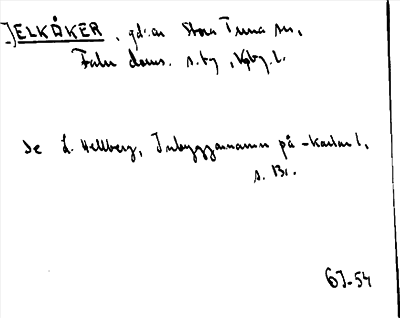 ELKÅKER, gd: Stora Tuna sn,
Falu doms.
Se L. Hellberg, Inbyggarnamn på -karlar l,
s. 131.
61-54